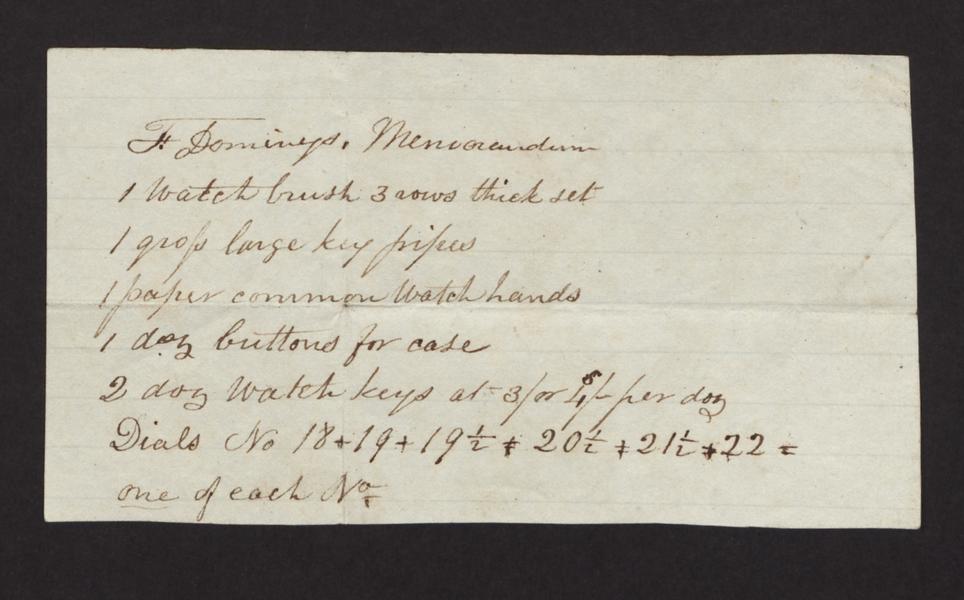 F. Dominys. Memorandum
1 Watch brush 3 rows thick set
1 groſs large key pipes
1 paper common Watch hands
1 doz buttons for case
2 doz Watch keys at 3/ or 4/ per doz
Dials No 18 + 19 + 19 ½ + 20 ½ + 21 ½ + 22 =
one of each No